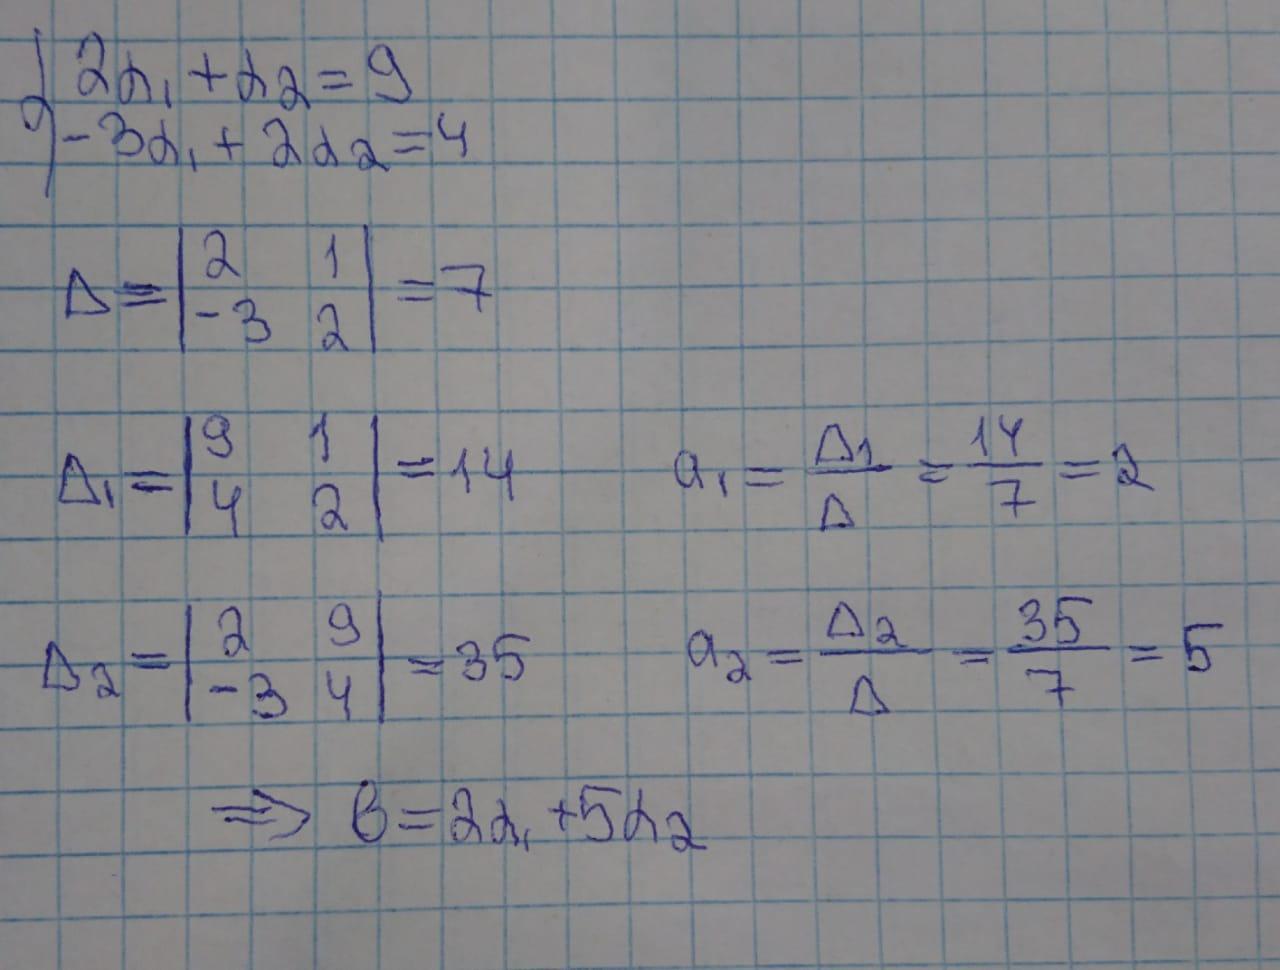 2α₁ + α₂ = 9
-3α₁ + 2α₂ = 4
Δ = |2 1| = 7
|-3 2|
Δ₁ = |9 1| = 14 a₁ = Δ₁/Δ = 14/7 = 2
|4 2|
Δ₂ = |2 9| = 35 a₂ = Δ₂/Δ = 35/7 = 5
|-3 4|
⇒ в = 2α₁ + 5α₂